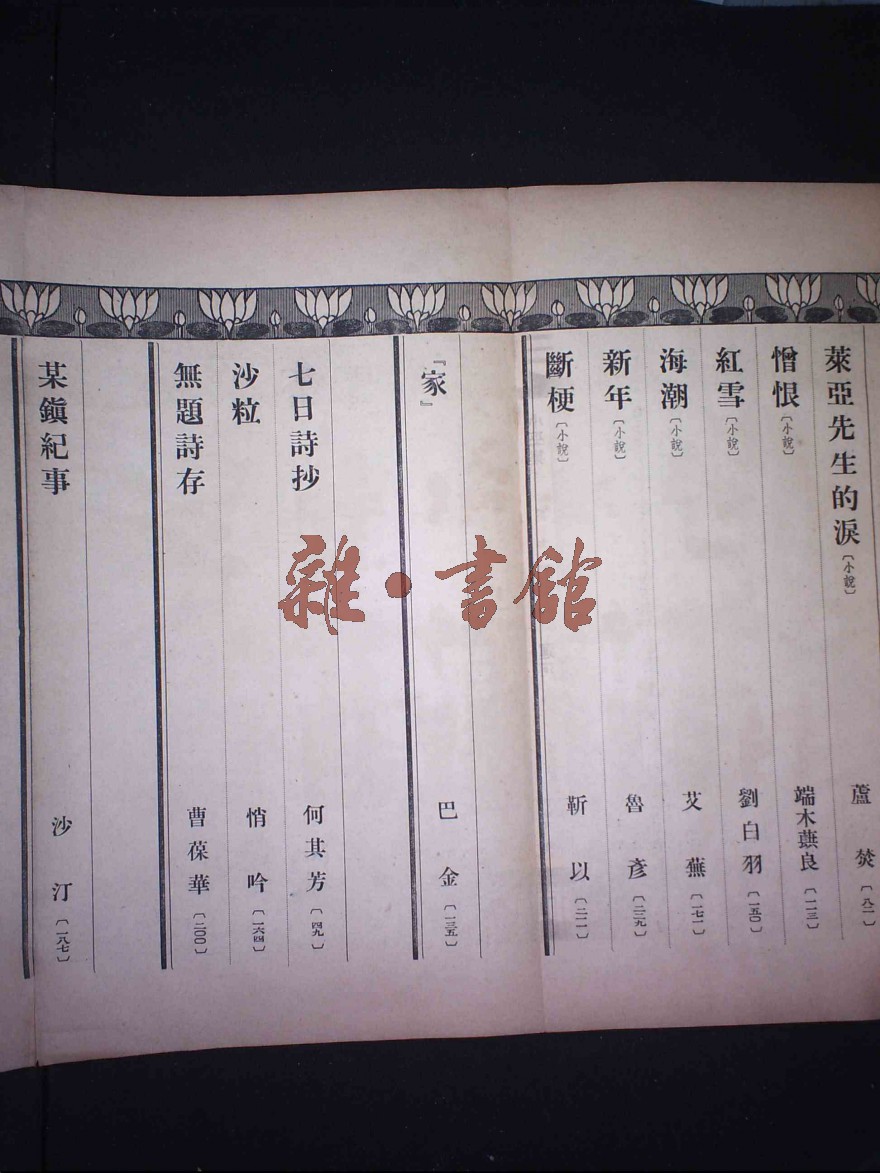 萊亞先生的淚〔小說〕 蘆焚〔八一〕
憎恨〔小說〕 端木蕻良〔一一三〕
紅雪〔小說〕 劉白羽〔一五〇〕
海潮〔小說〕 艾蕪〔一七一〕
新年〔小說〕 魯彥〔二二九〕
斷梗〔小說〕 靳以〔二一一〕
『家』 巴金〔一三五〕
七日詩抄 何其芳〔四九〕
沙粒 悄吟〔一六四〕
無題詩存 曹葆華〔二〇〇〕
某鎭紀事 沙汀〔一八七〕
雜·書館